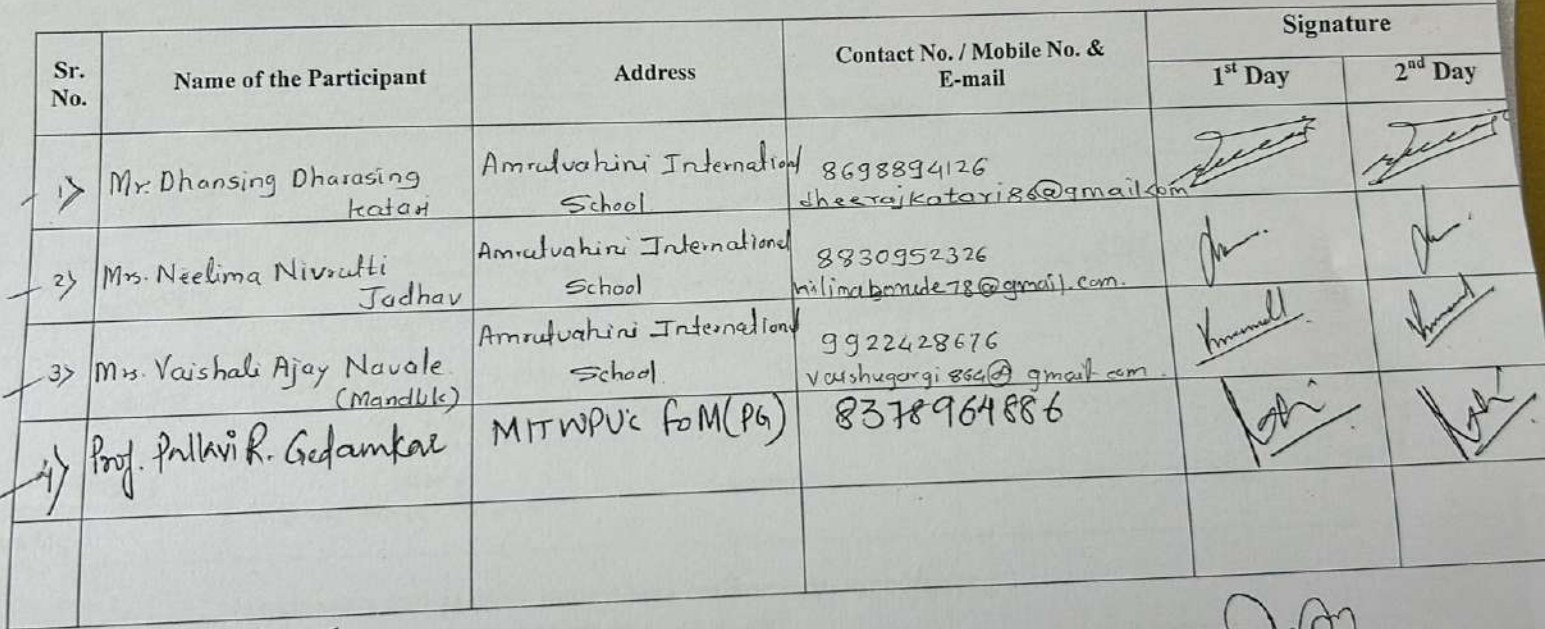 Signature
Sr. No.
Name of the Participant
Address
Contact No. / Mobile No. & E-mail
1st Day
2nd Day
1) Mr. Dhansing Dharasing Katari
Amrutvahini International School
8698894126
dheerajkatari86@gmail.com
2) Mrs. Neelima Nivrutti Jadhav
Amrutvahini International School
8830952326
3) Mrs. Vaishali Ajay Navale (Mandlik)
Amrutvahini International School
9922428676
vaishugargi864@gmail.com
4) Prof. Pallavi R. Gedamkar
MITWPU's FoM(PG)
8378964886